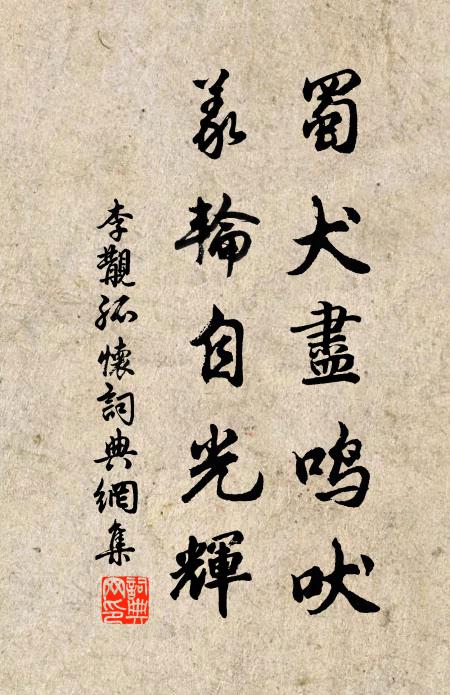 蜀犬盡鳴吠
羲輪自光輝
李覯孤懷詞典網集
詞典網印